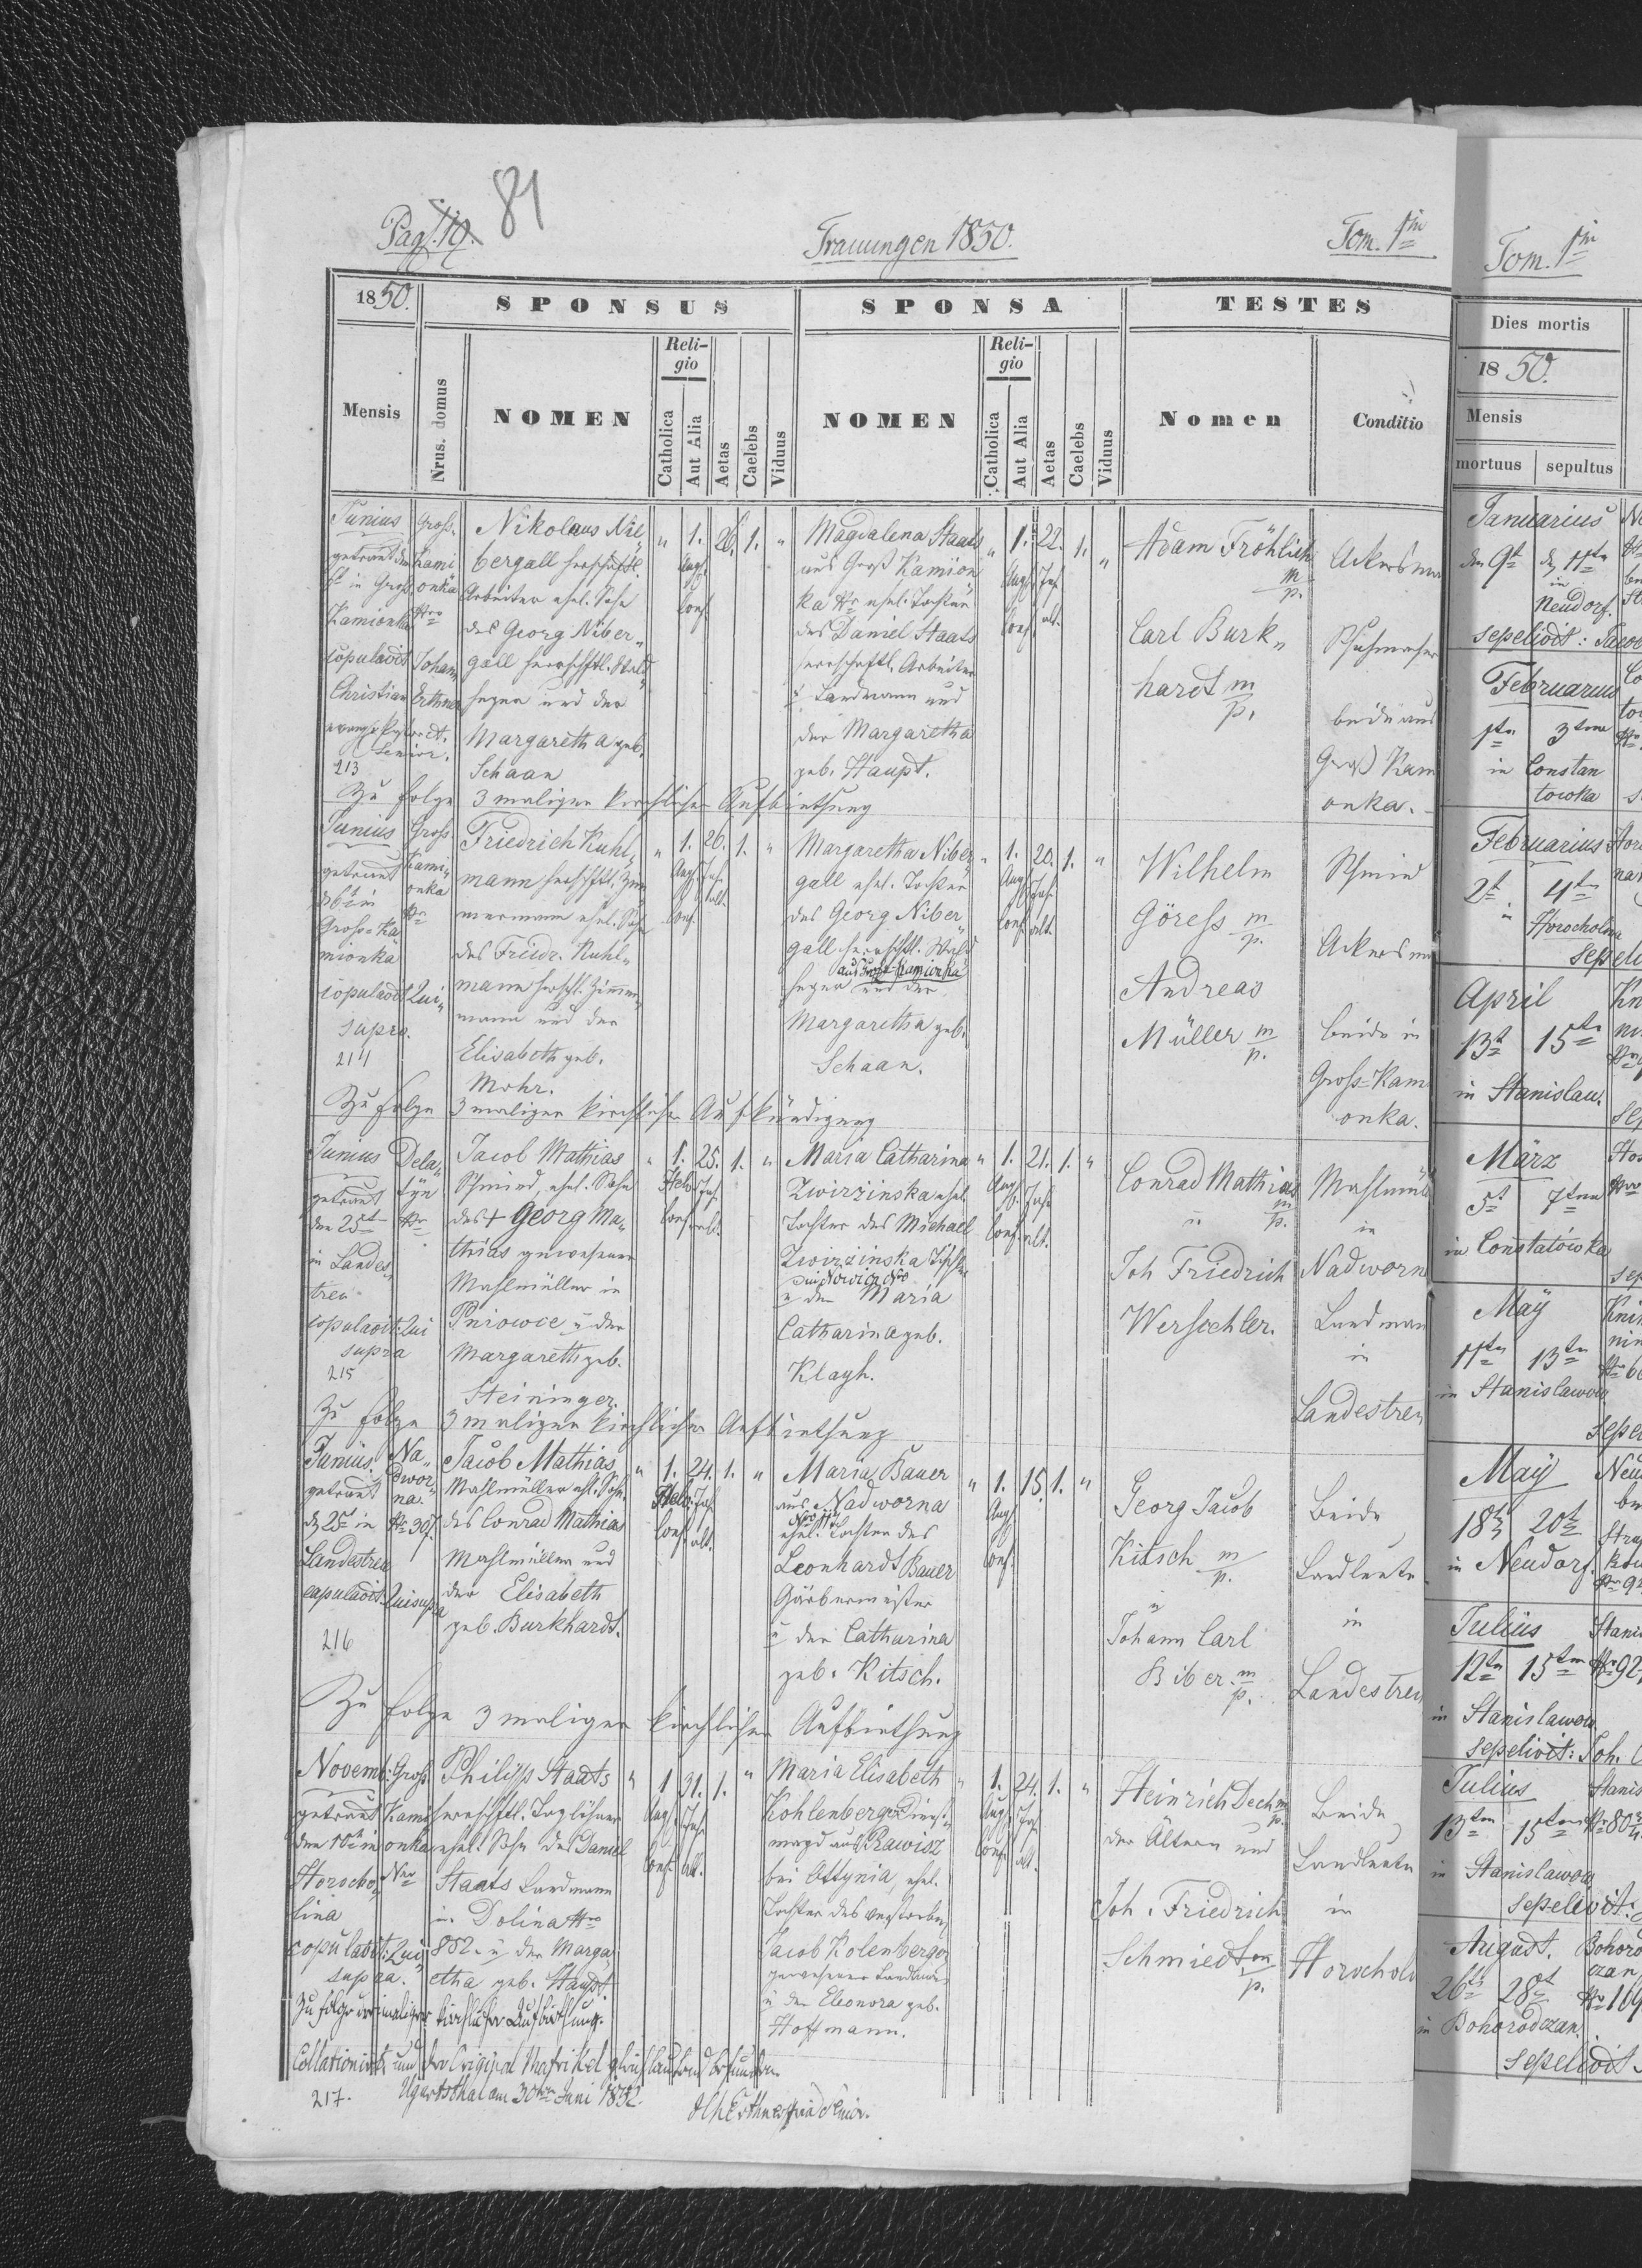 81
Pag. 19.
Trauungen 1850.
Tom. 1m
1850.
SPONSUS
SPONSA
TESTES
Mensis
Nrus. domus
NOMEN
Religio
Catholica
Aut Alia
Aetas
Caelebs
Viduus
NOMEN
Religio
Catholica
Aut Alia
Aetas
Caelebs
Viduus
Nomen
Conditio
Junius
getraut den
6t in Gross
Kamionka
copulavit
Christian
Senior.
213
Gross-
Kami
onka
Nro
Johann
Erthner
Nikolaus Nie„
bergall herrschftl.
Arbeiter ehel. Sohn
des Georg Niber„
gall herrschftl. Wald„
heger und der
Margaretha geb.
Schaan
„
1.
Augs.
Conf.
26.
1.
„
Magdalena Staats
aus Groß Kamion
ka Nr ehel. Tochter
des Daniel Staats
herrschaftl. Arbeiter
u Landmann und
der Margaretha
geb. Haupt.
„
1.
Augs.
Conf.
22.
Jah.
alt.
1.
„
Adam Fröhlich
m/p.
Carl Burk„
hardt m/p.
Ackersma
Schuhmacher
beide aus
Groß Kam
onka.
Zu folge 3 maliger kirchlicher Aufbiethung
Junius
getraut
d 6t in
Gross=Ka
mionka
copulavit
supra.
214
Gross
Kami„
onka
Nr
Qui„
Friedrich Kuhl„
mann herschftl. Zim
mermann ehel. Sohn
des Friedr. Kuhl„
mann herschl. Zimmer„
mann und der
Elisabeth geb.
Mohr.
„
1.
Augs.
Conf.
26.
Jah.
alt.
1.
„
Margaretha Niber„
gall ehel. Tochter
des Georg Niber
gall herrschftl. Wald
aus Gross-Kamionka
heger und der
Margaretha geb.
Schaan.
„
1.
Augs.
Conf.
20.
Jah.
alt.
1.
„
Wilhelm
Göress m/p.
Andreas
Müller m/p.
Schmied
Ackersma
beide in
Gross=Kam
onka.
Zu folge 3 maliger kirchlicher Aufkündigung
Junius
getraut
den 25t
in Landes„
treu
copulavit: Qui
supra
215
Dela„
tÿn
Nr
Jacob Mathias
Schmied, ehel. Sohn
des + Georg Ma„
thias gewesener
Mahlmüller in
Pniowce u der
Margareth geb.
Steininger.
„
1.
Helv.
Conf.
25.
Jah.
alt.
1.
„
Maria Catharina
Zwirzinska ehel.
Tochter des Michael
Zwirzinska Tischler
in Nowica Nro
u der Maria
Catharina geb.
Klagh.
„
1.
Augs.
Conf.
21.
Jah.
alt.
1.
„
Conrad Mathias
m/p.
u
Joh Friedrich
Werschler.
Mahlmül
in
Nadworn
Landman
in
Landestreu
Zu folge 3 maliger kirchlicher Aufbiethung
Junius.
getraut
d 25t in
Landestreu
copulavit. Qui supra
216
Na„
dwor
na.
Nr 307.
Jacob Mathias
Mahlmüller ehl. Sohn
des Conrad Mathias
Mahlmüller und
der Elisabeth
geb. Burkhardt.
„
1.
Helv.
Conf.
24.
Jah
alt.
1.
„
Maria Bauer
aus Nadworna
ehel. Tochter des
Leonhardt Bauer
Gärbermeister
u der Catharina
geb. Kitsch.
„
1.
Augs.
Conf.
15.
1.
„
Georg Jacob
Kitsch m/p.
u
Johann Carl
Biber. m/p.
Beide
Landleute
in
Landestreu
Zu folge 3 maliger kirchlicher Aufbiethung
Novemb:
getraut
den 10t in
Horocho„
lina
copulavit: Qui
supra.
Gross
Kami
onka
Nro
Philipp Staats
herrschftl. Taglöhner
ehel. Sohn des Daniel
Staats Landmann
in Dolina Nro
852. u der Marga„
etha geb. Haupt.
„
1
Augs.
Conf.
31.
Jah.
alt.
1.
„
Maria Elisabeth
Kohlenberger Dienst„
magd aus Rawisz
bei Ottynia, ehel.
Tochter des verstorbe
Jacob Kolenberger
gewesener Landman
u der Eleonora geb.
Hoffmann.
„
1.
Augs.
Conf.
24.
Jah.
alt.
1.
„
Heinrich Dech m/p.
der Ältere und
Joh. Friedrich
Schmiedt m/p.
Beide
Landleute
in
Horochol
Zu folge dreimaliger kirchlicher Aufbiethung.
Collationirt und der Original Matrikel gleichlautend befunden.
Ugartsthal am 30ten Juni 1852.
217.
Tom. 1m
Dies mortis
1850.
Mensis
mortuus
sepultus
Januarius
den 9t
d 11ten
in
Neudorf.
sepelivit: Jacob
Februarius
1ten
3ten
in Constan
towka
Februarius
2t
4ten
in
Horocholina
sepeli
April
13t
15ten
in Stanislau.
März
5t
7ten
in Constatowka
May
11ten
13ten
in Stanislawow
sepel
May
18t
20t
in Neudorf.
Julius
12ten
15ten
Nr 92
in Stanislawow
sepelivit: Joh.
Julius
13ten
15ten
in Stanislawow
sepelivit:
August.
26t
28t
Bohorod
czan
in Bohorodczan.
sepelivit